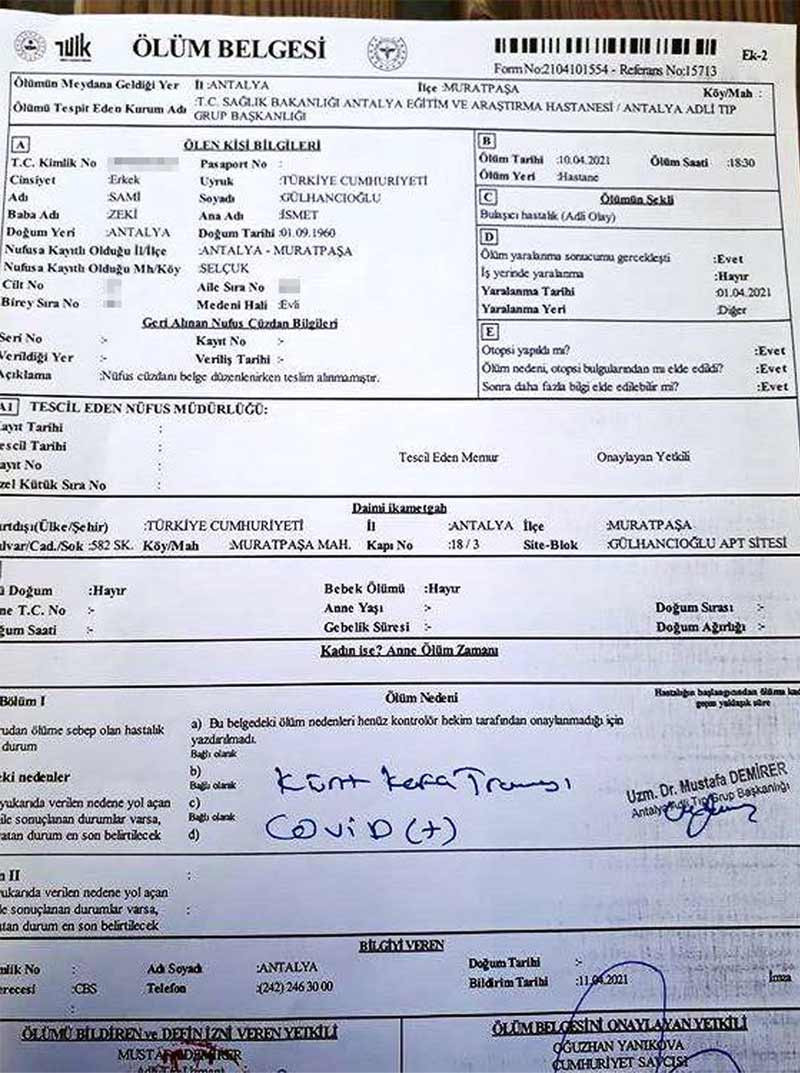 TÜİK ÖLÜM BELGESİ
Form No:2104101554 - Referans No:15713 Ek-2
Ölümün Meydana Geldiği Yer İl :ANTALYA İlçe :MURATPAŞA Köy/Mah :
Ölümü Tespit Eden Kurum Adı :T.C. SAĞLIK BAKANLIĞI ANTALYA EĞİTİM VE ARAŞTIRMA HASTANESİ / ANTALYA ADLİ TIP
GRUP BAŞKANLIĞI
A ÖLEN KİŞİ BİLGİLERİ
T.C. Kimlik No Pasaport No :
Cinsiyet :Erkek Uyruk :TÜRKİYE CUMHURİYETİ
Adı :SAMİ Soyadı :GÜLHANCIOĞLU
Baba Adı :ZEKİ Ana Adı :İSMET
Doğum Yeri :ANTALYA Doğum Tarihi :01.09.1960
Nufusa Kayıtlı Olduğu İl/İlçe :ANTALYA - MURATPAŞA
Nufusa Kayıtlı Olduğu Mh/Köy :SELÇUK
Cilt No : Aile Sıra No :
Birey Sıra No Medeni Hali :Evli
Geri Alınan Nufus Cüzdan Bilgileri
Seri No :- Kayıt No :-
Verildiği Yer :- Veriliş Tarihi :-
Açıklama :Nüfus cüzdanı belge düzenlenirken teslim alınmamıştır.
B
Ölüm Tarihi :10.04.2021 Ölüm Saati :18:30
Ölüm Yeri :Hastane
C Ölümün Şekli
Bulaşıcı hastalık (Adli Olay)
D
Ölüm yaralanma sonucumu gerçekleşti :Evet
İş yerinde yaralanma :Hayır
Yaralanma Tarihi :01.04.2021
Yaralanma Yeri :Diğer
E
Otopsi yapıldı mı? :Evet
Ölüm nedeni, otopsi bulgularından mı elde edildi? :Evet
Sonra daha fazla bilgi elde edilebilir mi? :Evet
A1 TESCİL EDEN NÜFUS MÜDÜRLÜĞÜ:
Kayıt Tarihi :
Tescil Tarihi :
Kayıt No : Tescil Eden Memur Onaylayan Yetkili
zel Kütük Sıra No :
Daimi ikametgah
rtdışı(Ülke/Şehir) :TÜRKİYE CUMHURİYETİ İl :ANTALYA İlçe :MURATPAŞA
lvar/Cad./Sok :582 SK. Köy/Mah :MURATPAŞA MAH. Kapı No :18 / 3 Site-Blok :GÜLHANCIOĞLU APT SİTESİ
ü Doğum :Hayır Bebek Ölümü :Hayır
ne T.C. No :- Anne Yaşı :- Doğum Sırası :-
ğum Saati :- Gebelik Süresi :- Doğum Ağırlığı :-
Kadın ise? Anne Ölüm Zamanı
Bölüm I Ölüm Nedeni Hastalığın başlangıcından ölüme kad
geçen yaklaşık süre
rudan ölüme sebep olan hastalık
durum
a) Bu belgedeki ölüm nedenleri henüz kontrolör hekim tarafından onaylanmadığı için
yazdırılmadı.
Bağlı olarak
eki nedenler b)
Bağlı olarak
Künt Kafa Travması
yukarıda verilen nedene yol açan c)
ile sonuçlanan durumlar varsa, Bağlı olarak
atan durum en son belirtilecek d)
COVİD (+)
Uzm. Dr. Mustafa DEMİRER
Antalya Adli Tıp Grup Başkanlığı
m II :
yukarıda verilen nedene yol açan
ile sonuçlanan durumlar varsa, :
atan durum en son belirtilecek
BİLGİYİ VEREN
mlik No : Adı Soyadı :ANTALYA Doğum Tarihi :-
erecesi :CBS Telefon :(242) 246 30 00 Bildirim Tarihi :11.04.2021 İmza
:
ÖLÜMÜ BİLDİREN ve DEFİN İZNİ VEREN YETKİLİ
MUSTAFA DEMİRER
ÖLÜM BELGESİNİ ONAYLAYAN YETKİLİ
OĞUZHAN YANIKOVA
CUMHURİYET SAVCISI